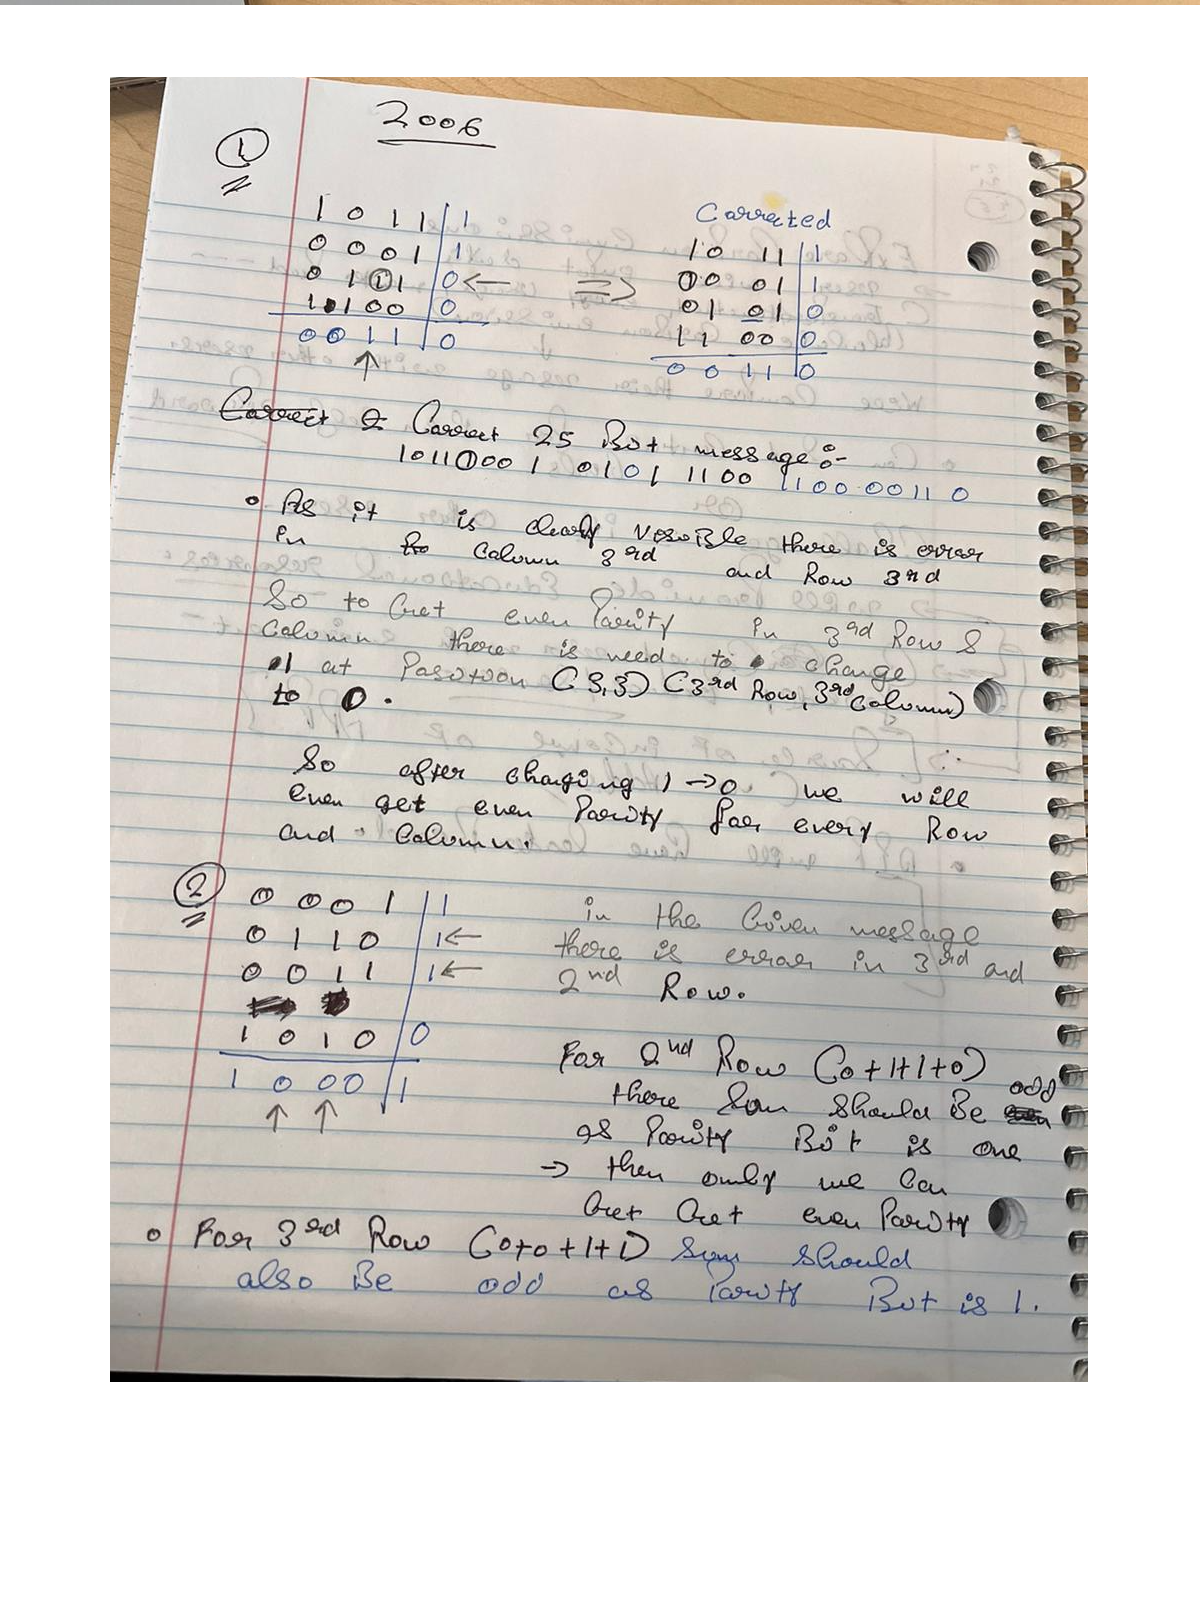 2006
1
1 0 1 1 | 1
0 0 0 1 | 1
0 1 1 1 | 0 ←
1 1 0 0 | 0
0 0 1 1 | 0
↑
⇒
Corrected
1 0 1 1 | 1
0 0 0 1 | 1
0 1 0 1 | 0
1 1 0 0 | 0
0 0 1 1 | 0
Correct 25 Bit message :-
1011000 1 0101 1100 1100 00110
• As it is clearly visible there is error
in column 3rd and Row 3rd
So to Get even Parity in 3rd Row &
Column there is need to change
1 at Position (3,3) (3rd Row, 3rd Column)
to 0.
So after changing 1 → 0 we will
even get even Parity for every Row
and Column.
2
0 0 0 1 | 1
0 1 1 0 | 1 ←
0 0 1 1 | 1 ←
1 0 1 0 | 0
1 0 0 0 | 1
↑ ↑
in the Given message
there is error in 3rd and
2nd Row.
For 2nd Row (0+1+1+0)
there Sum Should Be odd
as Parity Bit is one
→ then only we can
Get Get even Parity
• For 3rd Row (0+0+1+1) Sum should
also Be odd as Parity Bit is 1.